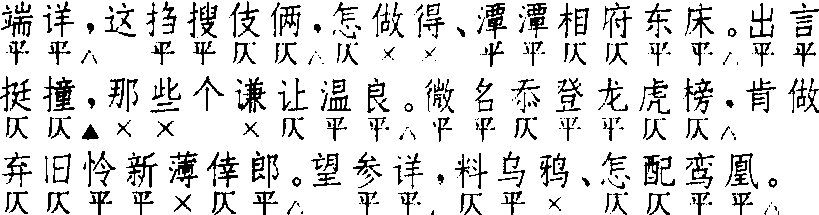 端详，这㧑搜伎俩，怎做得、潭潭相府东床。出言
平平△ 平平仄仄△仄×× 平平平仄平平△平平
挺撞，那些个谦让温良。微名忝登龙虎榜，肯做
仄仄▲×× ×仄平平△平平仄平平仄仄△
弃旧怜新薄倖郎。望参详，料乌鸦、怎配鸾凰。
仄仄平平×仄平△ 平平△仄平× 仄仄平平△